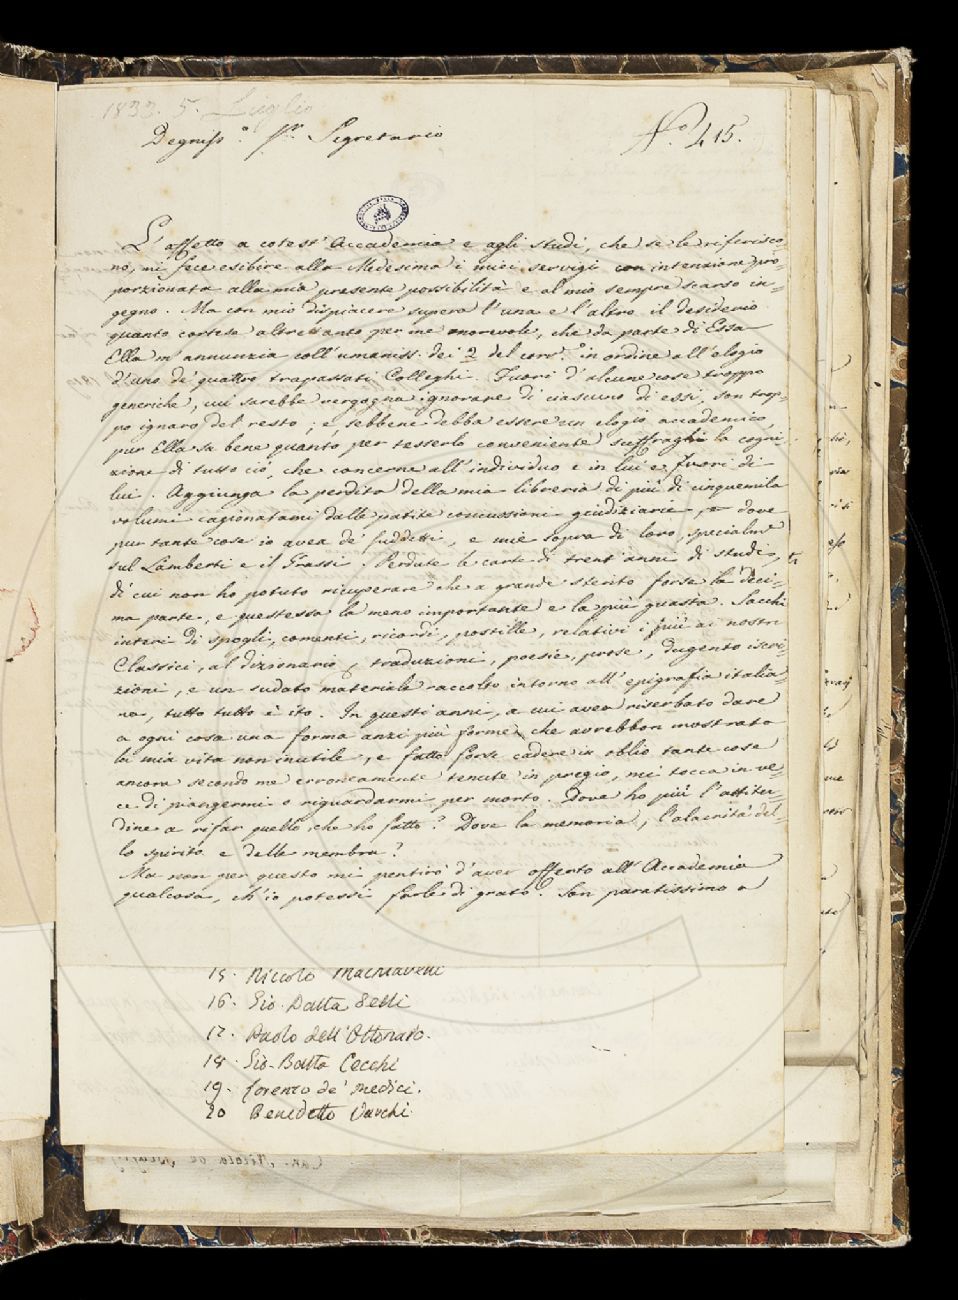 1832. 5. Luglio
Degniss.º S.r Segretario
N.º 415.
L'affetto a cotest' Accademia e agli studi, che se le riferisco-
no, mi fece esibire alla Medesima i miei servigi con intenzione pro-
porzionata alla mia presente possibilità e al mio sempre scarso in-
gegno. Ma con mio dispiacere supera l'una e l'altro il desiderio
quanto cortese altrettanto per me onorevole, che da parte di Essa
Ella m' annunzia coll' umaniss. dei 2 del corr.e in ordine all' elogio
d'uno de' quattro trapassati Colleghi. Fuori d' alcune cose troppo
generiche, cui sarebbe vergogna ignorare di ciascuno di essi, son trop-
po ignaro del resto; e sebbene debba essere un elogio accademico,
pur Ella sa bene quanto per tesserlo conveniente suffraghi la cogni-
zione di tutto ciò, che concerne all' individuo e in lui e fuori di
lui. Aggiunga la perdita della mia libreria di più di cinquemila
volumi cagionatami dalle patite concussioni giudiziarie, e dove
pur tante cose io avea de' suddetti, e mie sopra di loro, specialm.e
sul Lamberti e il Grassi. Perdute le carte di trent' anni di studio,
di cui non ho potuto ricuperare che a grande stento forse la deci-
ma parte, e questessa la meno importante e la più guasta. Sacchi
interi di spogli, comenti, ricordi, postille, relativi i più ai nostri
Classici, al dizionario, traduzioni, poesie, prose, dugento iscri-
zioni, e un sudato materiale raccolto intorno all' epigrafia italia-
na, tutto tutto è ito. In questi anni, a cui avea riserbato dare
a ogni cosa una forma anzi più forme, che avrebbon mostrato
la mia vita non inutile, e fatto forse cadere in oblio tante cose
ancora secondo me erroneamente tenute in pregio, mi tocca in ve-
ce di piangermi o riguardarmi per morto. Dove ho più l'attitu-
dine a rifar quello, che ho fatto? Dove la memoria, l'alacrità del-
lo spirito e delle membra?
Ma non per questo mi pentirò d'aver offerto all' Accademia
qualcosa, ch' io potessi farle di grato. Son paratissimo a
15. Niccolò Machiavelli
16. Gio. Batta Gelli
17. Paolo dell' Ottonaro.
18. Gio. Batta Cecchi
19. Lorenzo de' Medici.
20 Benedetto Varchi.